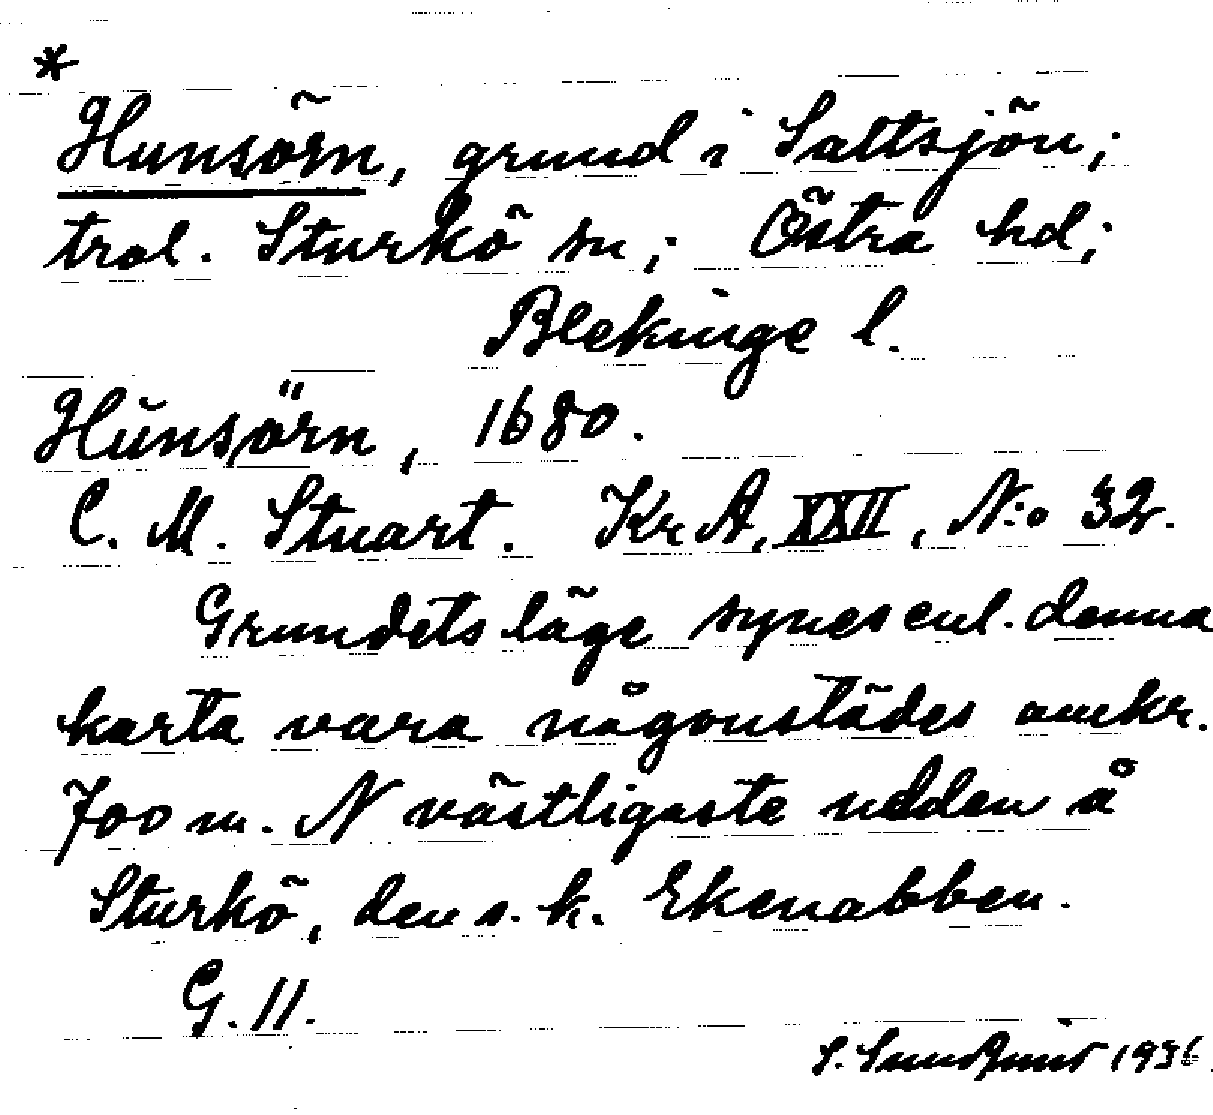 *
Hunsörn, grund i Saltsjön;
trol. Sturkö sn; Östra hd;
Blekinge l.
Hŭnsörn, 1680.
C. M. Stuart. KrA, XXII, N:o 32.
Grundets läge synes enl. denna
karta vara någonstädes omkr.
700 m. N västligaste udden å
Sturkö, den s. k. Ekenabben.
G. 11.
S. 1936